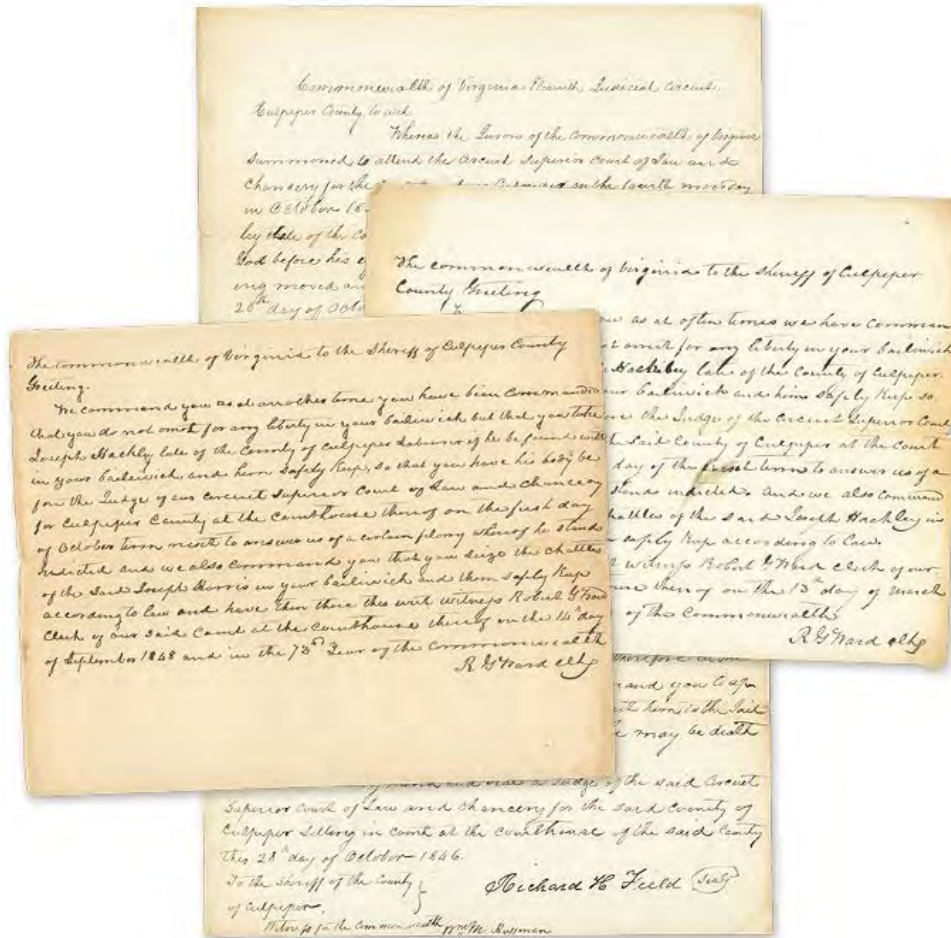 Commonwealth of Virginia Eleventh Judicial Circuit
Culpeper County to wit
Whereas the Jurors of the Commonwealth of Virginia
Summoned to attend the Circuit Superior Court of Law and
Chancery for the on the fourth monday
in October 18
by state of the Co
God before his ey
ing moved an
28th day of Octo
The commonwealth of Virginia to the Sheriff of Culpeper
County Greeting
as at often times we have Comman
omit for any liberty in your bailiwick
Hackley late of the County of Culpeper
bailiwick and him Safely Keep So
the Judge of the Circuit Superior Court
the Said County of Culpeper at the Court
day of the first term to answer us of a
stands indicted. And we also command
chattles of the said Joseph Hackley in
safely Keep according to Law
witness Robert G Ward clerk of our
thereof on the 13th day of March
of the Commonwealth
R G Ward clk
The Commonwealth of Virginia to the Sheriff of Culpeper County
Greeting.
We command you as at another time you have been Commanded
that you do not omit for any liberty in your bailiwick but that you take
Joseph Hackly late of the County of Culpeper Labourer if he be found with
in your bailiwick and him Safely Keep, so that you have his body be
for the Judge of our Circuit Superior Court of Law and Chancery
for Culpeper County at the Courthouse thereof on the first day
of October term next to answer us of a certain felony whereof he stands
Indicted and we also Command you that you seize the chattles
of the Said Joseph Harris in your bailiwick and them Safely Keep
according to law and have then there this writ witness Robert G Ward
Clerk of our Said Court at the Courthouse thereof on the 14th day
of September 1848 and in the 73rd Year of the Commonwealth
R G Ward clk
and you to
him to the Jail
he may be dealt
a Judge of the said Circuit
Superior Court of Law and Chancery for the said County of
Culpeper Sitting in Court at the Courthouse of the said County
This 28th day of October 1846.
To the Sheriff of the County
of Culpeper.
Richard H Field Seal
Witness for the Commonwealth Wm M